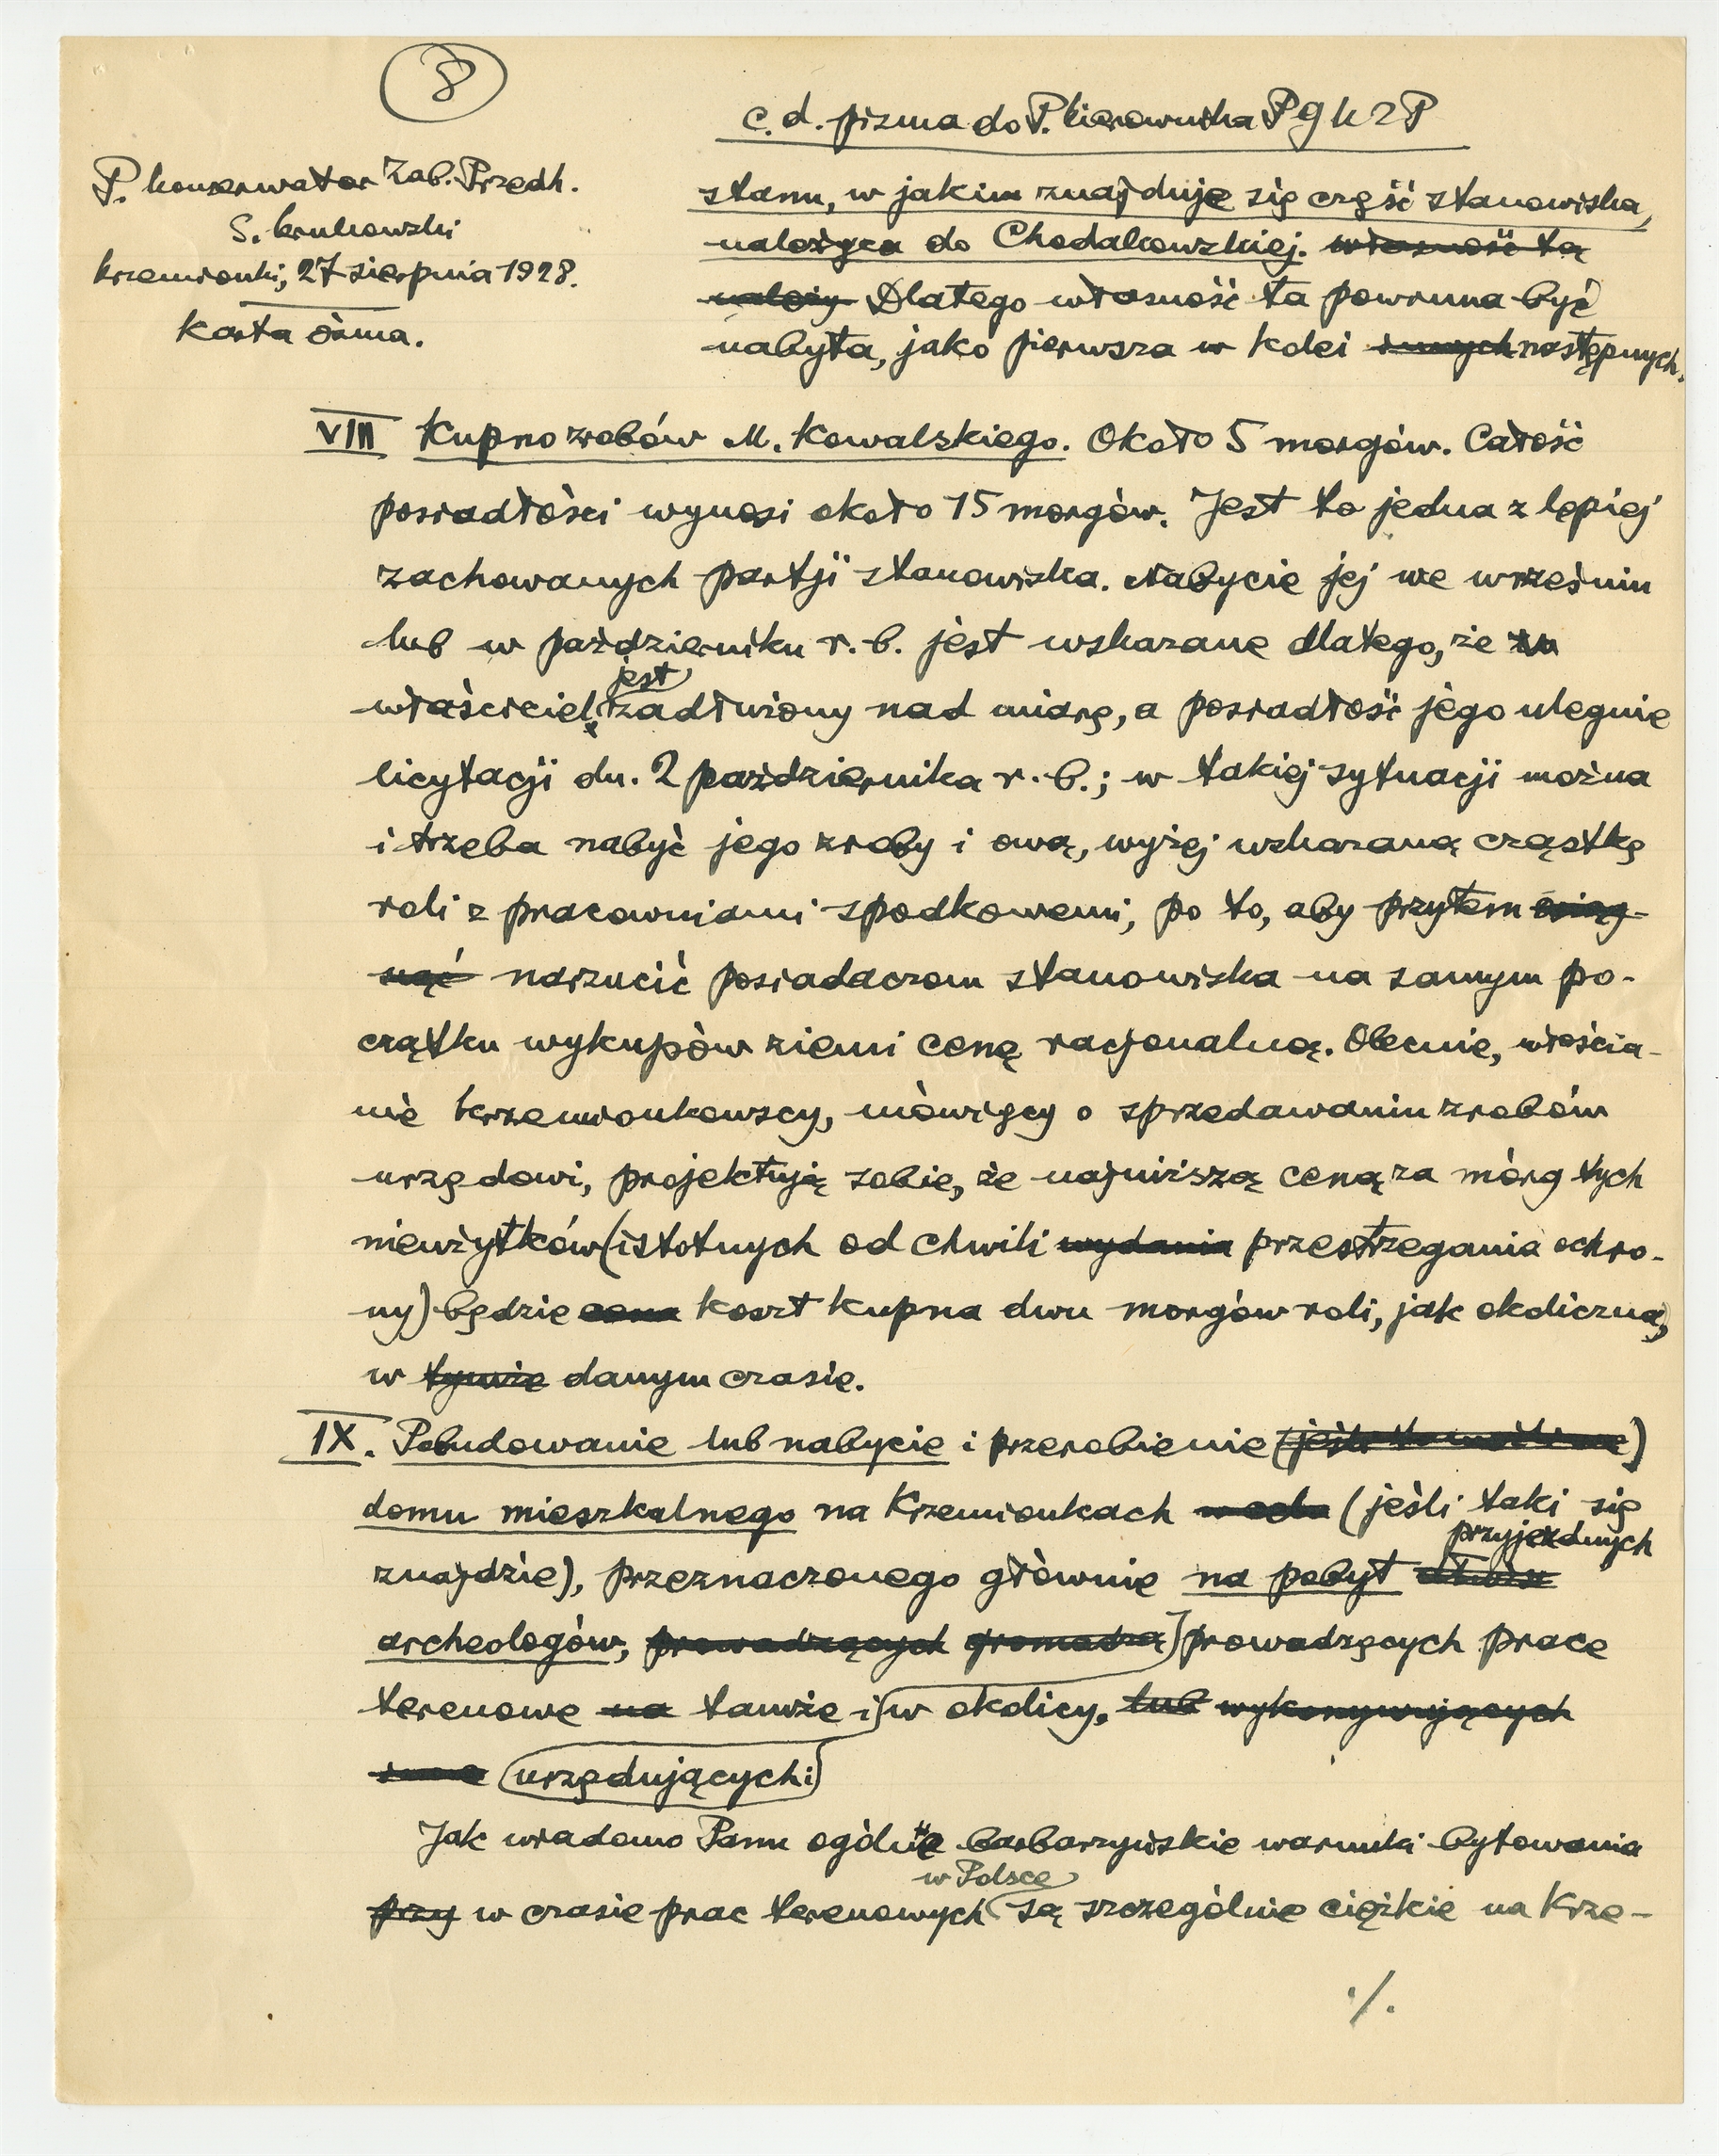 8
c. d. pisma do P. kierownika PGKZP
P. konserwator Zab. Przedh.
S. krukowski
krzemionki, 27 sierpnia 1928.
karta ósma.
stanu, w jakim znajduje się część stanowiska,
należąca do Chodakowskiej. własność ta
należy Dlatego własność ta powinna być
nabyta, jako pierwsza w kolei innych następnych.
VIII Kupno zrobów M. Kowalskiego. Około 5 morgów. Całość
posiadłości wynosi około 15 morgów. Jest to jedna z lepiej
zachowanych partji stanowiska. Nabycie jej we wrześniu
lub w październiku r. b. jest wskazane dlatego, że
jest
właściciel zadłużony nad miarę, a posiadłość jego ulegnie
licytacji dn. 2 października r. b.; w takiej sytuacji można
i trzeba nabyć jego zroby i ową, wyżej wskazaną cząstkę
roli z pracowniami spodkowemi, po to, aby przytem osiąg-
nąć narzucić posiadaczom stanowiska na samym po-
czątku wykupów ziemi cenę racjonalną. Obecnie, włościa-
nie krzemionkowscy, mówiący o sprzedawaniu zrobów
urzędowi, projektują sobie, że najniższą ceną za mórg tych
nieużytków (istotnych od chwili wydania przestrzegania ochro-
ny) będzie cena koszt kupna dwu morgów roli, jak okoliczna,
w tymże danym czasie.
IX. Pobudowanie lub nabycie i przerobienie (jeśli to możliwe)
domu mieszkalnego na Krzemionkach (jeśli taki się
przyjezdnych
znajdzie), przeznaczonego głównie na pobyt
archeologów, prowadzących gromadzą prowadzących prace
terenowe na tamże i w okolicy, lub wykonywujących
inne urzędujących i
Jak wiadomo Panu ogólnie barbarzyńskie warunki bytowania
w Polsce
przy w czasie prac terenowych są szczególnie ciężkie na Krze-
./.